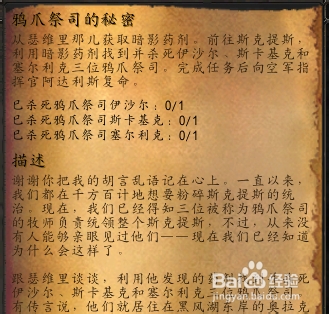 鸦爪祭司的秘密
从瑟维里那儿获取暗影药剂。前往斯克提斯，
利用暗影药剂找到并杀死伊沙尔、斯卡基克和
塞尔利克三位鸦爪祭司。完成任务后向空军指
挥官阿达利斯复命。
已杀死鸦爪祭司伊沙尔：0/1
已杀死鸦爪祭司斯卡基克：0/1
已杀死鸦爪祭司塞尔利克：0/1
描述
谢谢你把我的胡言乱语记在心上。一直以来，
我们都在千方百计地想要粉碎斯克提斯的统
治。现在，我们已经得知三位被称为鸦爪祭司
的牧师负责统领整个斯克提斯，不过，从来没
有人能够亲眼见过他们——现在我们已经知道
为什么会这样了。
跟瑟维里谈谈，利用他发现的药剂
死
伊沙尔、斯卡基克和塞尔利克三位鸦爪祭司。
有传言说，他们就居住在黑风湖东岸的奥拉克
Baidu经验
jingyan.baidu.com